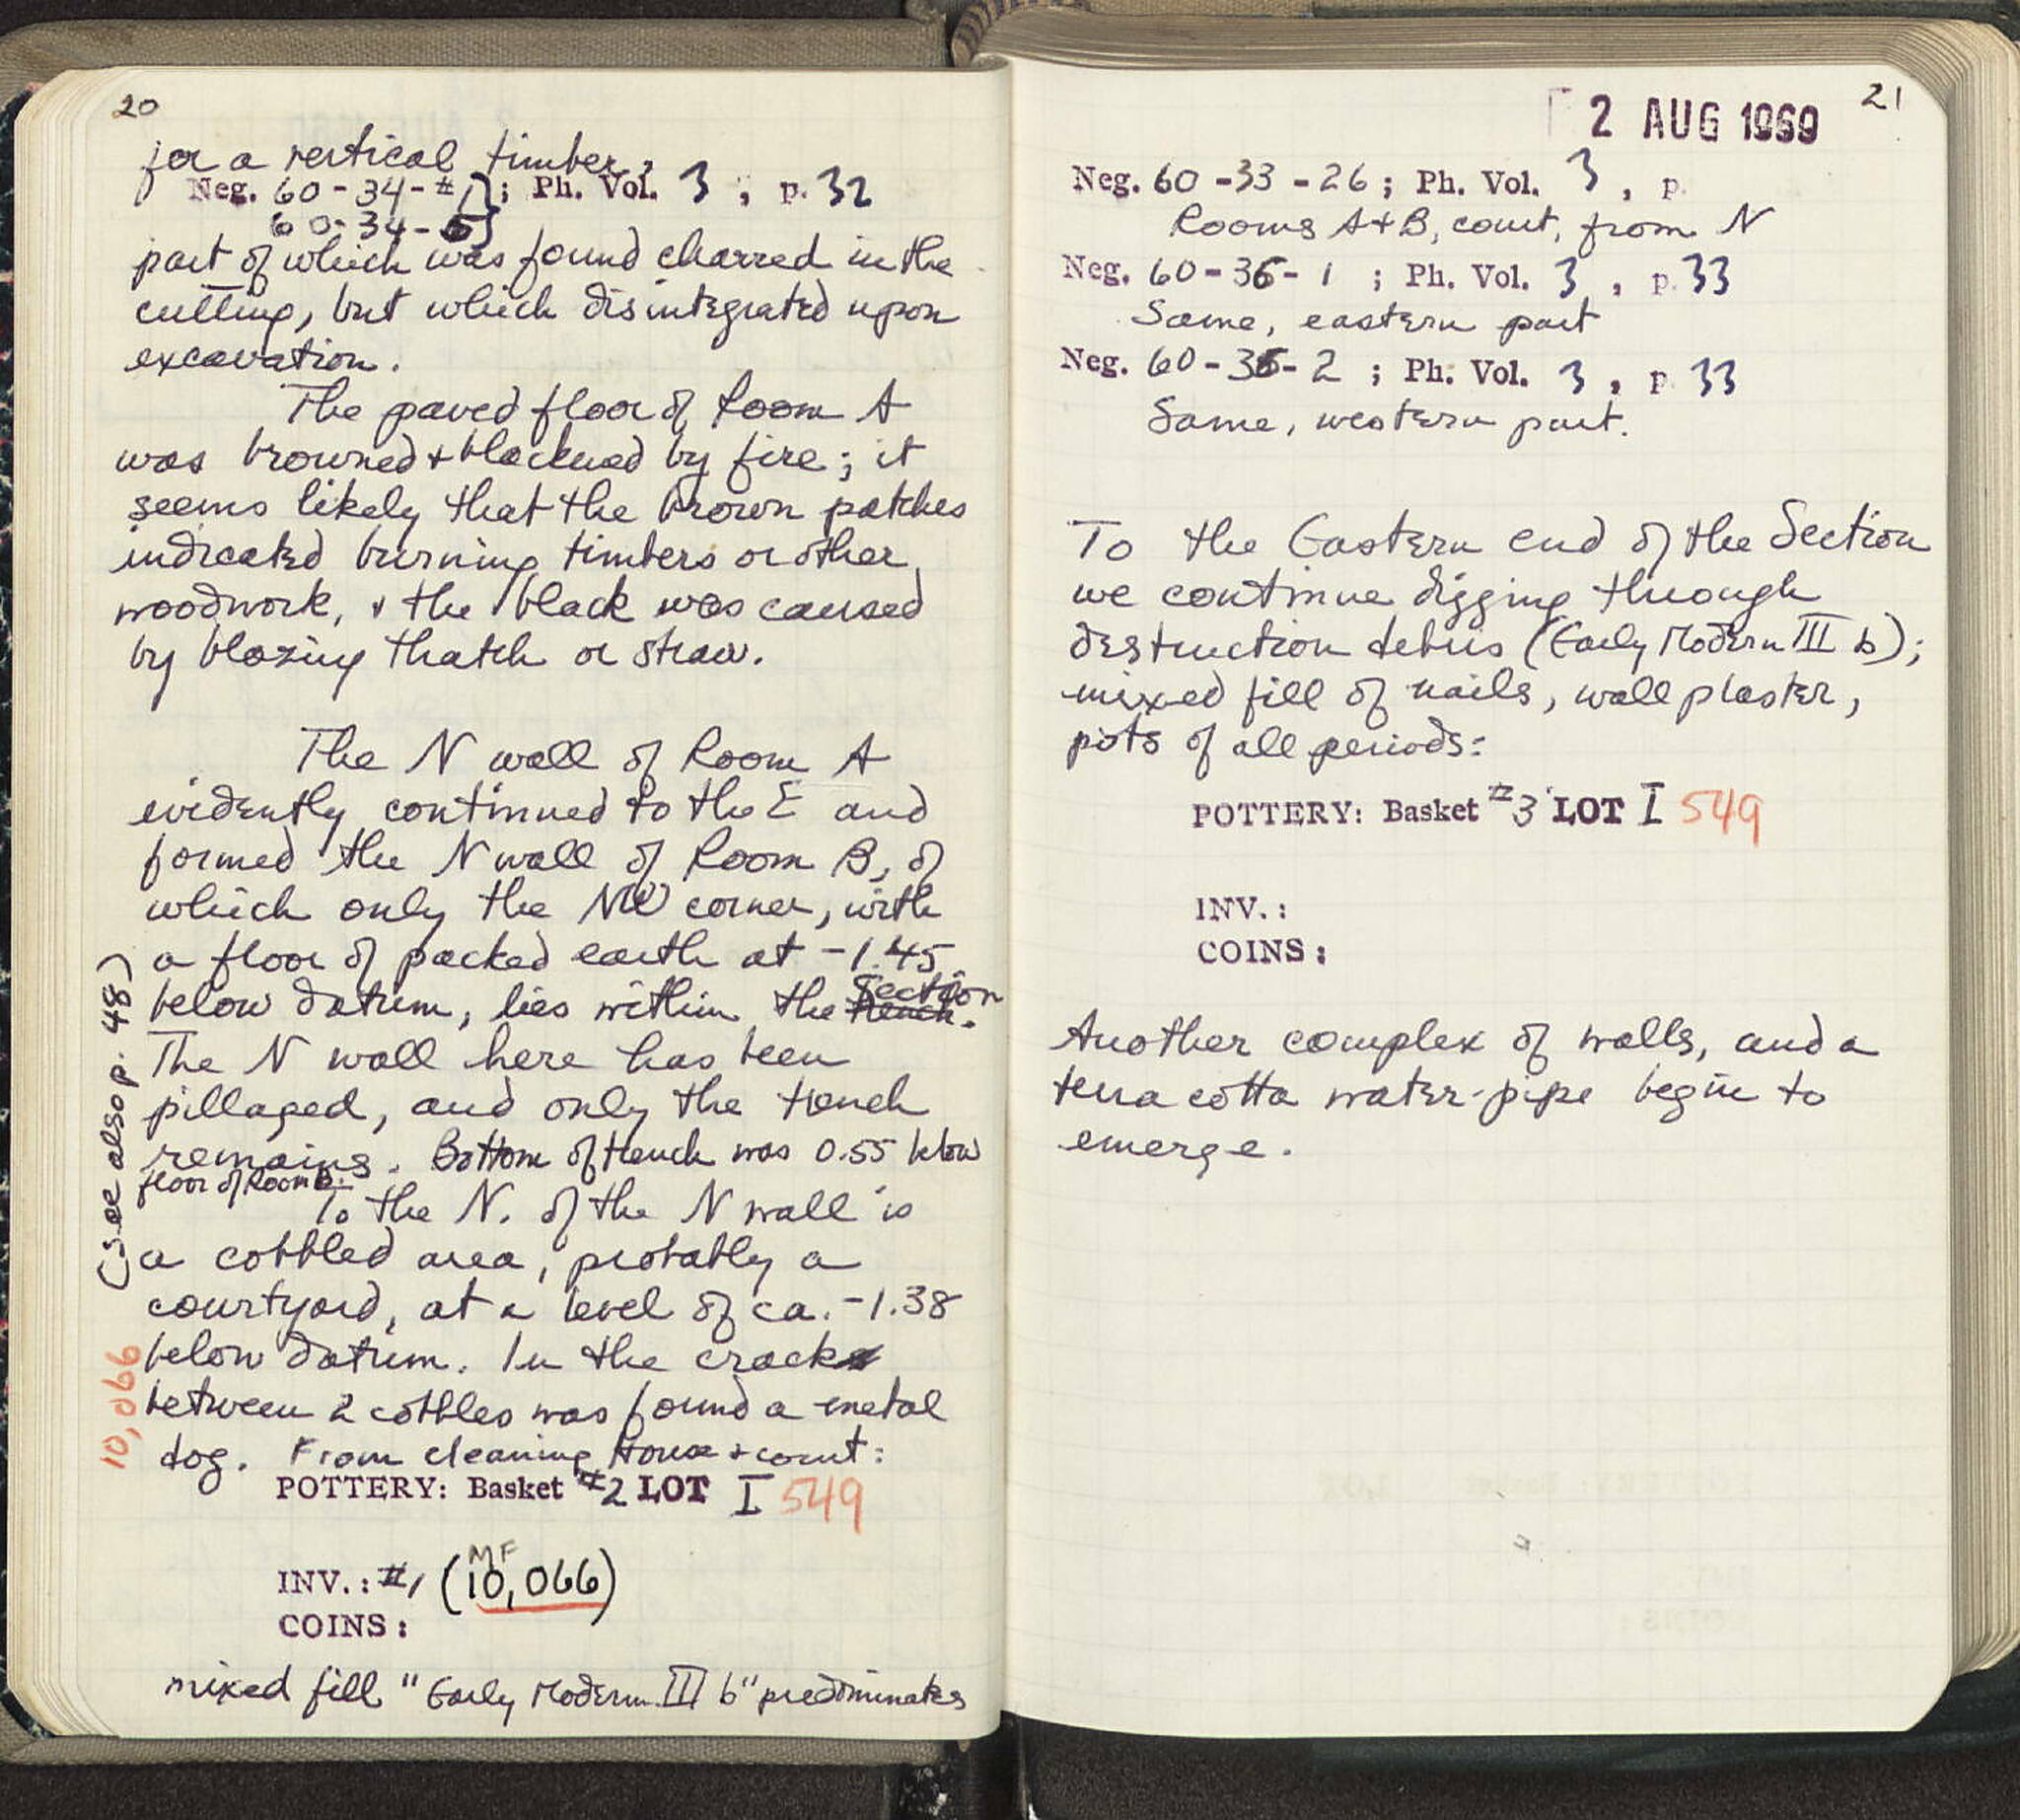 20
for a vertical timber,
Neg. 60-34-#1}; Ph. Vol. 3, p. 32
60-34-6}
part of which was found charred in the
cutting, but which disintegrated upon
excavation.
The paved floor of Room A
was browned & blackened by fire; it
seems likely that the brown patches
indicated burning timbers or other
woodwork, & the black was caused
by blazing thatch or straw.
The N wall of Room A
evidently continued to the E and
formed the N wall of Room B, of
which only the NW corner, with
a floor of packed earth at -1.45
below datum, lies within the trench. Section
The N wall here has been
pillaged, and only the trench
remains. Bottom of trench was 0.55 below
floor of Room B.
To the N. of the N wall is
a cobbled area, probably a
courtyard, at a level of ca. -1.38
below datum. In the crack
between 2 cobbles was found a metal
dog. From cleaning House & court:
(see also p. 48)
10,066
POTTERY: Basket #2 LOT I 549
INV.: #1 (MF 10,066)
COINS:
mixed fill "Early Modern III b" predominates
21
2 AUG 1960
Neg. 60-33-26; Ph. Vol. 3, p.
Rooms A+B, court, from N
Neg. 60-36-1; Ph. Vol. 3, p. 33
Same, eastern part
Neg. 60-36-2; Ph. Vol. 3, p. 33
Same, western part.
To the Eastern end of the Section
we continue digging through
destruction debris (Early Modern III b);
mixed fill of nails, wall plaster,
pots of all periods:
POTTERY: Basket #3 LOT I 549
INV.:
COINS:
Another complex of walls, and a
terra cotta water-pipe begin to
emerge.